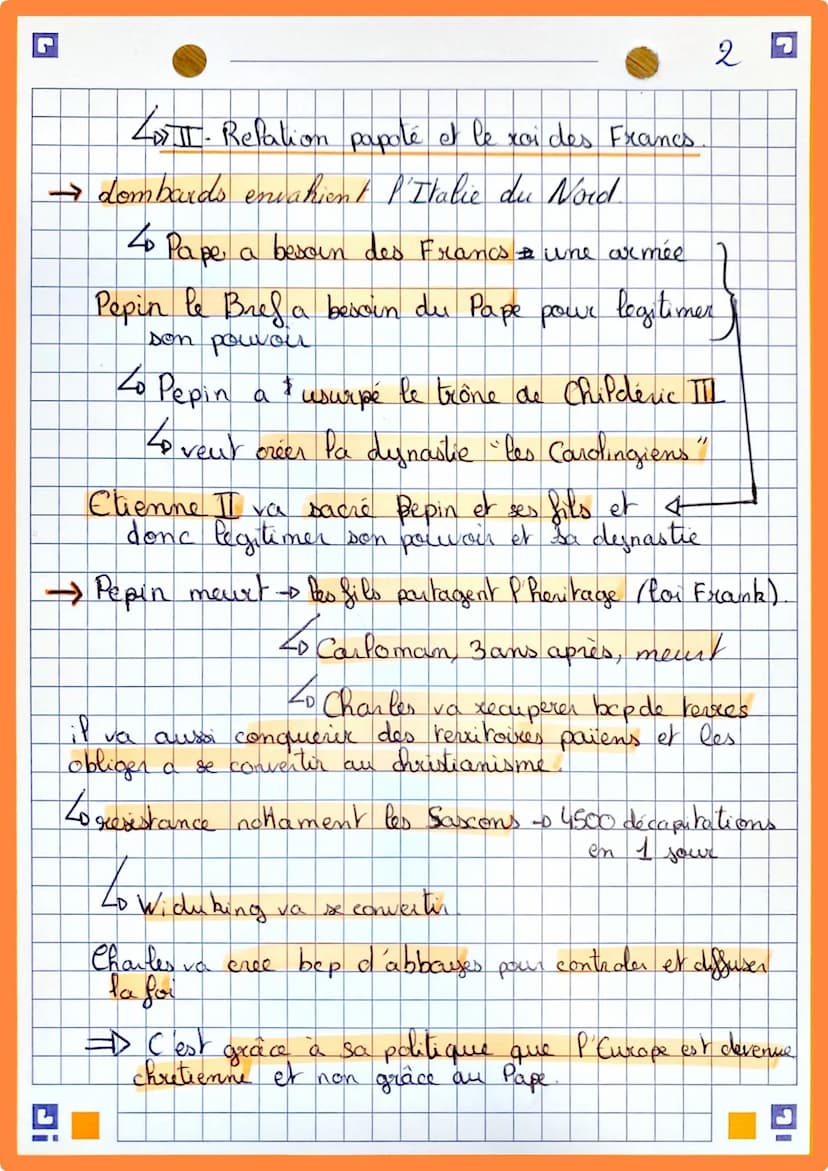 2
↳ II - Relation papoté et le roi des Francs.
→ Lombards envahient l'Italie du Nord.
↳ Pape a besoin des Francs = une armée
Pepin le Bref a besoin du Pape pour legitimer
son pouvoir
↳ Pepin a usurpé le trône de Childéric III
↳ veut créer la dynastie "les Carolingiens"
Etienne II va sacré Pepin et ses fils et
donc legitimer son pouvoir et sa dynastie
→ Pepin meurt → les fils partagent l'heritage (loi Frank).
↳ Carloman, 3 ans après, meurt
↳ Charles va recuperer bcp de terres
il va aussi conquerir des territoires païens et les
obliger a se convertir au christianisme.
↳ resistance nottament les Saxcons → 4500 décapitations
en 1 jour
↳ Widuking va se convertir.
Charles va creé bcp d'abbayes pour controler et diffuser
la foi
⇒ C'est grâce à sa politique que l'Europe est devenue
chretienne et non grâce au Pape.